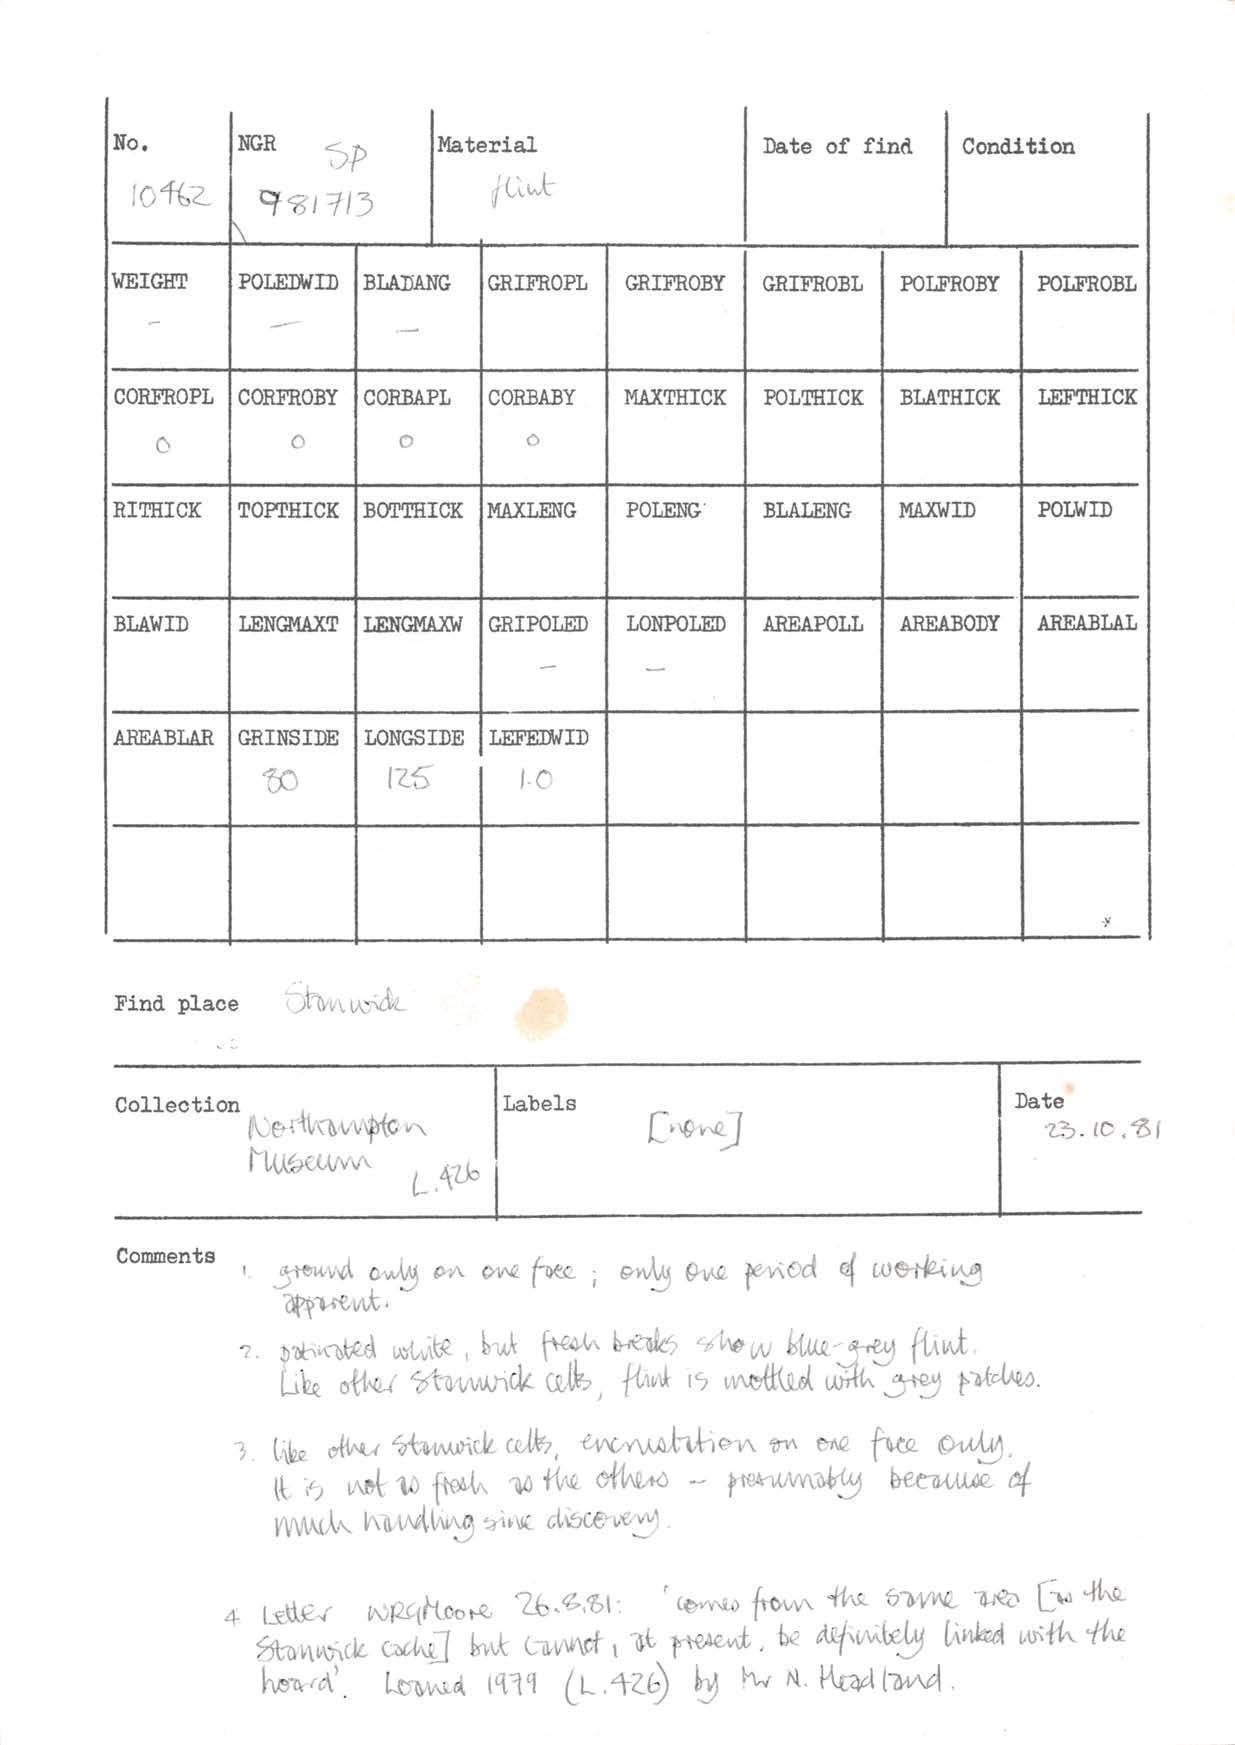 No. NGR SP Material Date of find Condition
10462 981713 flint
WEIGHT POLEDWID BLADANG GRIFROPL GRIFROBY GRIFROBL POLFROBY POLFROBL
– – –
CORFROPL CORFROBY CORBAPL CORBABY MAXTHICK POLTHICK BLATHICK LEFTHICK
0 0 0 0
RITHICK TOPTHICK BOTTHICK MAXLENG POLENG BLALENG MAXWID POLWID
BLAWID LENGMAXT LENGMAXW GRIPOLED LONPOLED AREAPOLL AREABODY AREABLAL
– –
AREABLAR GRINSIDE LONGSIDE LEFEDWID
80 125 1.0
Find place Stanwick
Collection Labels Date
Northampton [none] 23.10.81
Museum
L.426
Comments
1. ground only on one face ; only one period of working
apparent.
2. patinated white, but fresh breaks show blue-grey flint.
Like other Stanwick celts, flint is mottled with grey patches.
3. like other Stanwick celts, encrustation on one face only.
It is not as fresh as the others – presumably because of
much handling since discovery.
4 Letter WRGMoore 26.8.81: 'comes from the same area [as the
Stanwick cache] but cannot, at present, be definitely linked with the
hoard'. Loaned 1979 (L.426) by Mr N. Headland.